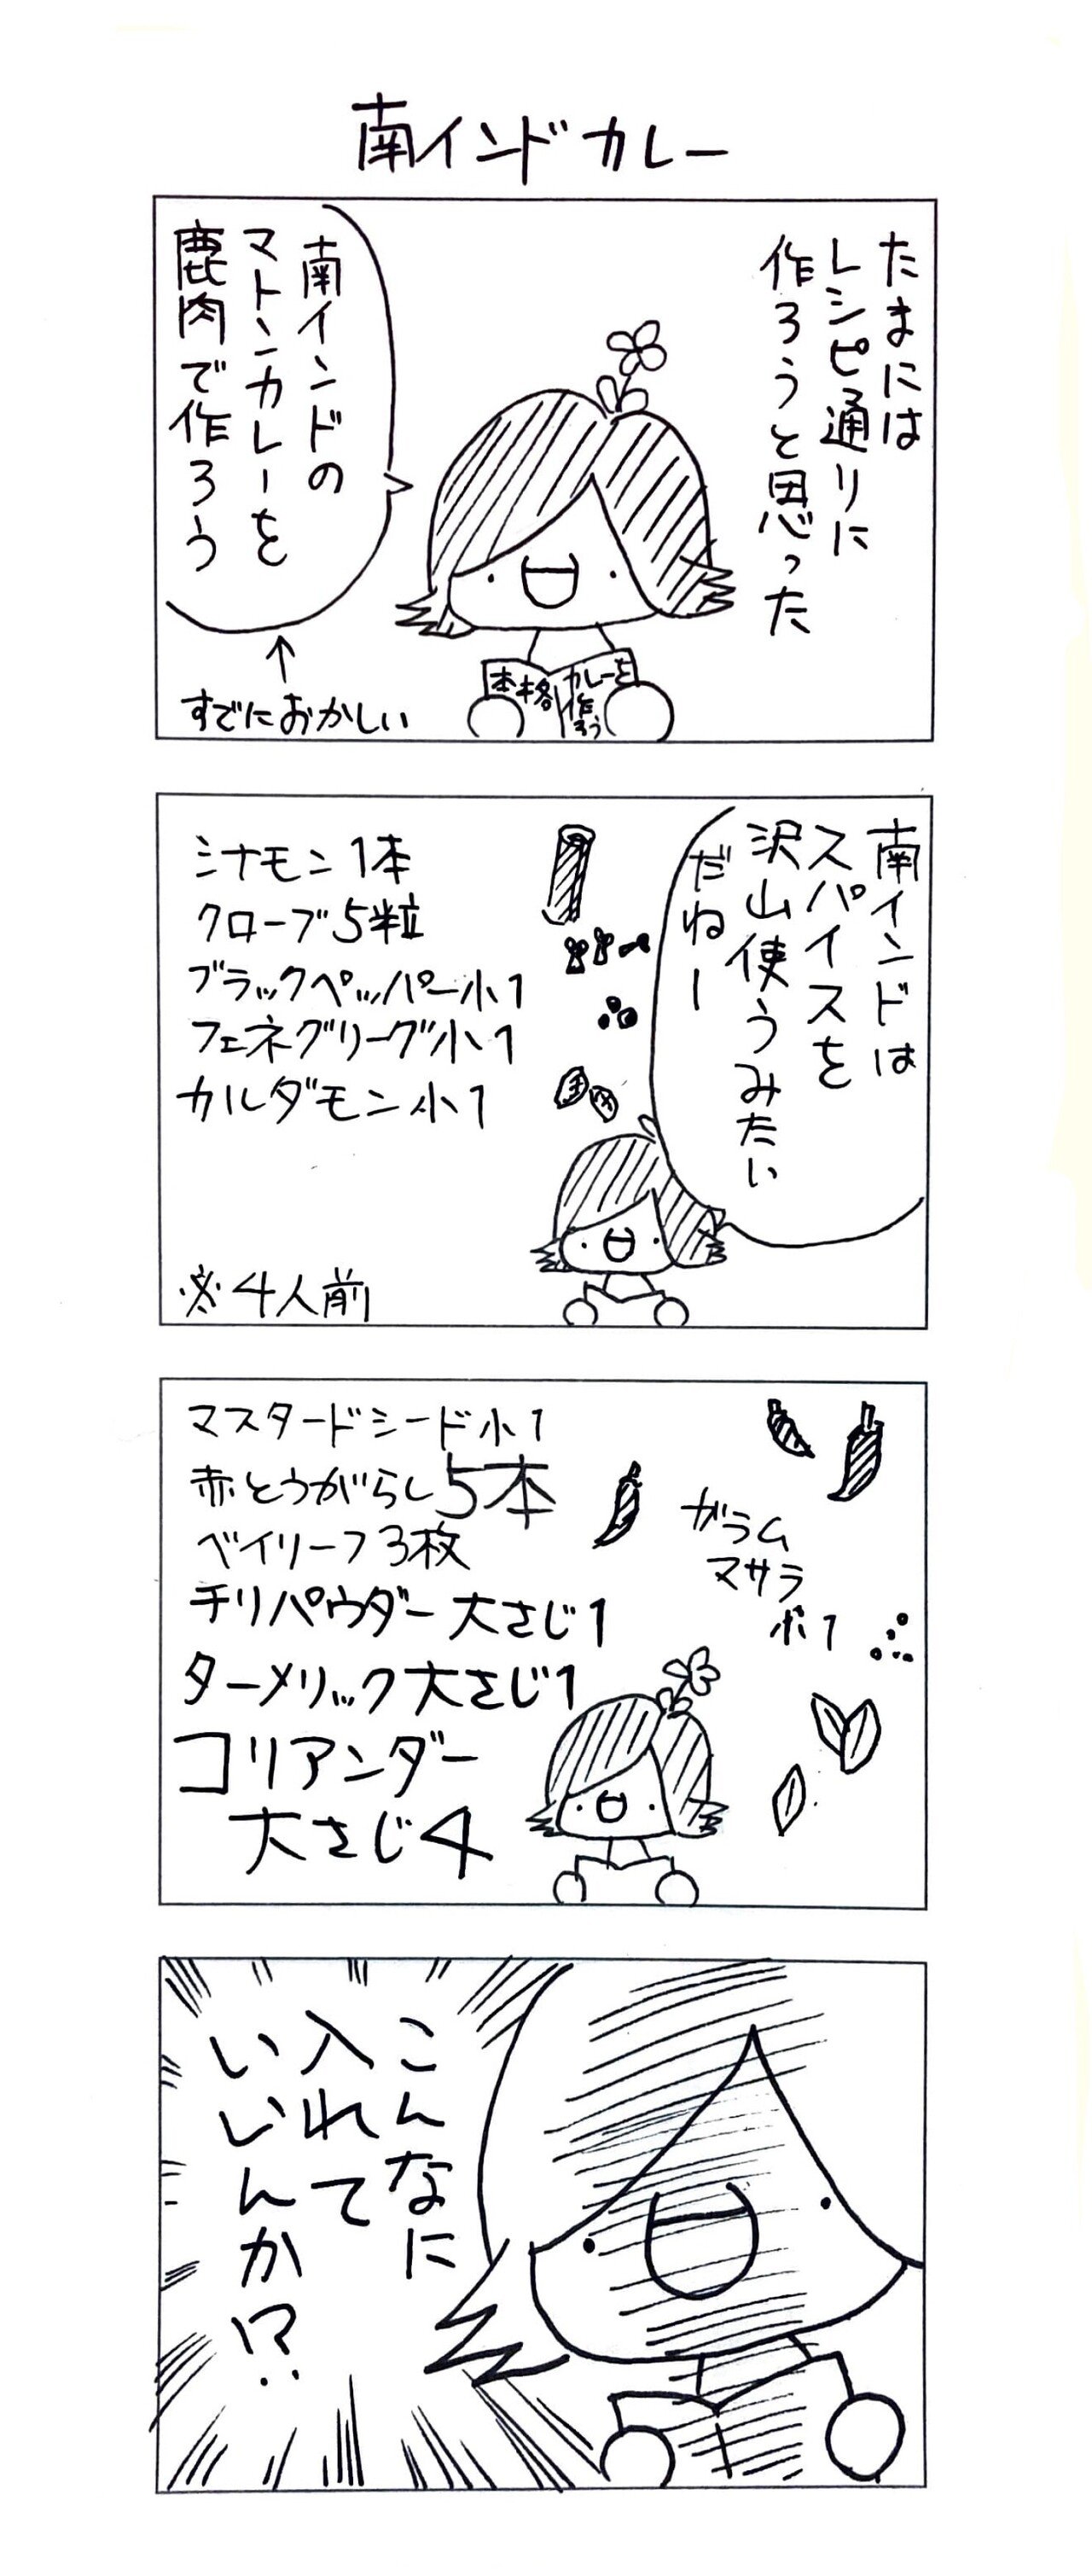 南インドカレー
たまには
レシピ通りに
作ろうと思った
南インドの
マトンカレーを
鹿肉で作ろう
↑
すでにおかしい
本格
カレーを
作ろう
南インドは
スパイスを
沢山使うみたい
だねー
シナモン1本
クローブ5粒
ブラックペッパー小1
フェネグリーグ小1
カルダモン小1
※4人前
マスタードシード小1
赤とうがらし5本
ベイリーフ3枚
チリパウダー大さじ1
ターメリック大さじ1
コリアンダー
大さじ4
ガラム
マサラ
小1
こんなに
入れて
いいんか!?